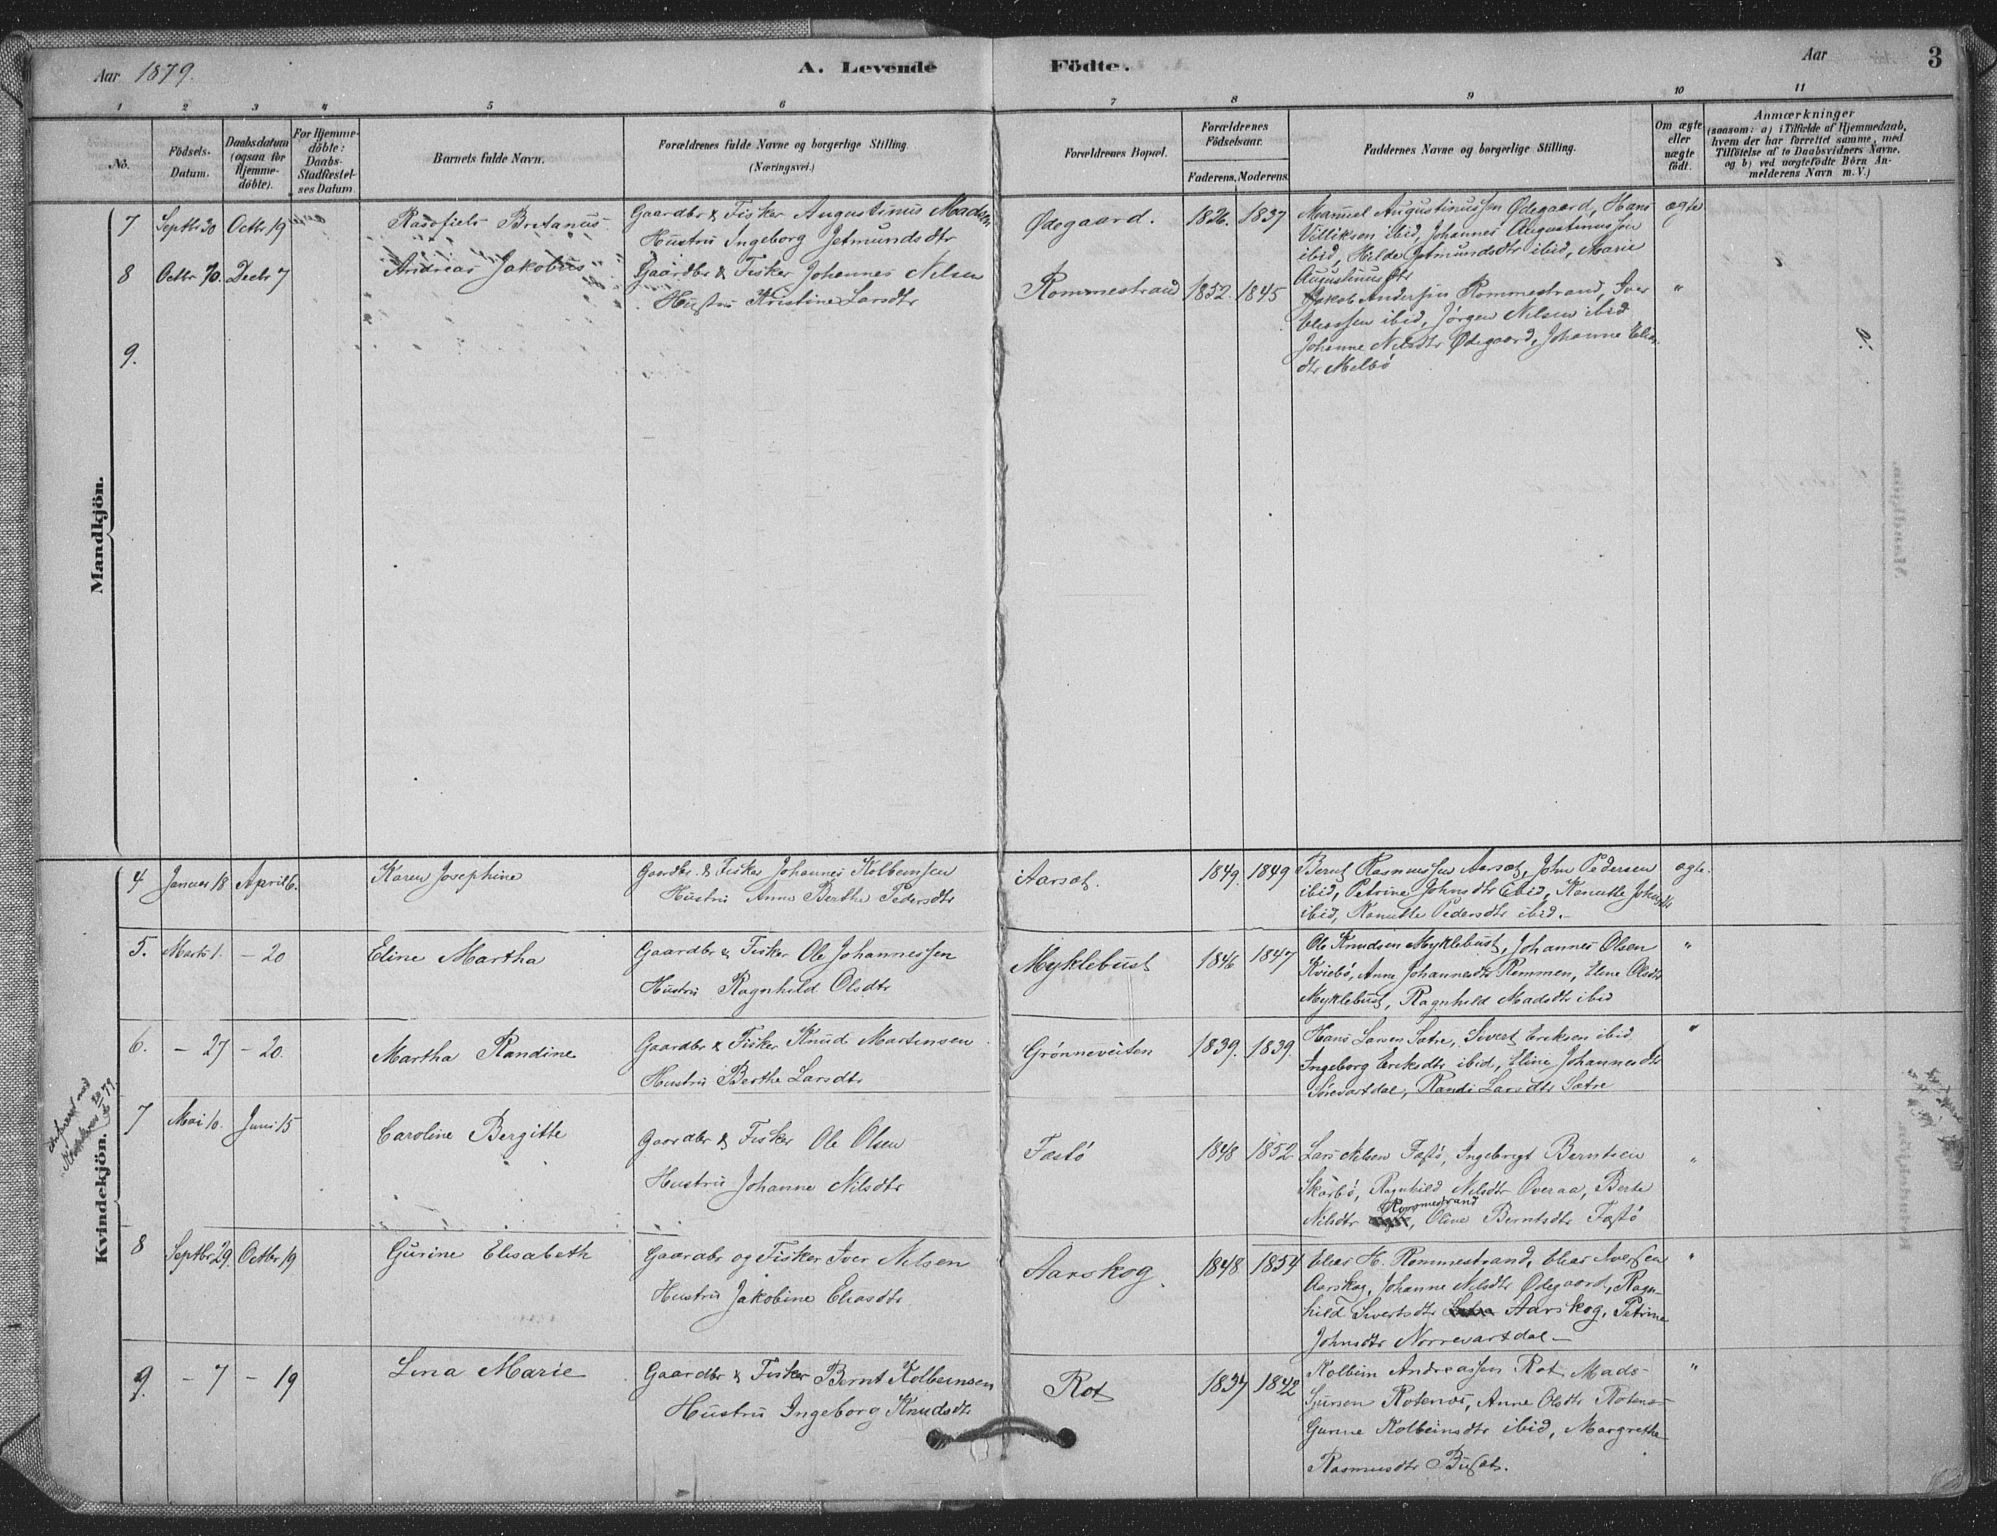 Aar 1879.
A. Levende Födte.
Aar
3
1 2 3 4 5 6 7 8 9 10 11
No.
Födsels-Datum.
Daabsdatum (ogsaa for Hjemme-döbte).
For Hjemme-döbte: Daabs-Stadfæstel-ses Datum.
Barnets fulde Navn.
Forældrenes fulde Navne og borgerlige Stilling.
(Næringsvei.)
Forældrenes Bopæl.
Forældrenes Födselsaar.
Faderens. Moderens.
Faddernes Navne og borgerlige Stilling.
Om ægte eller uægte födt.
Anmærkninger
(saasom: a) i Tilfælde af Hjemmedaab, hvem der har forrettet samme, med Tilföielse af to Daabsvidners Navne, og b) ved uægtefödte Börn An-melderens Navn m. V.)
Mandkjön.
7 Septbr 20 Octbr 19 Bretanus Gaardbr & Fisker Augustinus Madsen
Hustru Ingeborg Jetmundsdtr
Ødegaard. 1826. 1837
Manuel Augustinussen Ødegaard, Hans
Villiksen ibid, Johannes Augustinussen
ibid, Hilde Jetmundsdtr ibid, Marie
Augustinusdtr
ægte
8 Octbr 10. Decbr 7 Andreas Jakobus Gaardbr & Fisker Johannes Nilsen
Hustru Kristine Larsdtr
Rommestrand 1852. 1845
Jakob Andersen Rommestrand, Iver
Eliassen ibid, Jørgen Nilsen ibid
Johanne Nilsdtr Ødegaard, Johanne Elias-
dtr Melbø
"
9.
Kvindekjön.
4 Januar 18 April 6. Karen Josephine Gaardbr. & Fisker Johannes Kolbeinsen
Hustru Anne Berthe Pedersdtr
Aarsæt. 1849. 1849
Bernt Rasmussen Aarsæt, John Pedersen
ibid, Petrine Johnsdtr ibid, Kanutte Johnsdtr
ibid, Kanutte Pedersdtr ibid.
ægte.
5. Marts 1. - 20 Eline Martha Gaardbr & Fisker Ole Johannessen
Hustru Ragnhild Olsdtr
Myklebust 1846 1847
Ole Knudsen Myklebust, Johannes Olsen
Kviebø, Anne Johannesdtr Remmen, Eline Olsdtr
Myklebust, Ragnhild Madsdtr ibid
"
6. - 27 - 20. Martha Randine Gaardbr & Fisker Knud Martinsen
Hustru Berthe Larsdtr
Grønneveiten 1839. 1839.
Hans Larsen Sætre, Sivert Eriksen ibid
Ingeborg Eriksdtr ibid, Eline Johannesdtr
Sørevartdal, Randi Larsdtr Sætre
"
7 Mai 10. Juni 15 Caroline Bergitte Gaardbr & Fisker Ole Olsen
Hustru Johanne Nilsdtr
Fastø 1848 1852
Lars Nilsen Fastø, Ingebrigt Berntsen
Skarbø, Ragnhild Nilsdtr Overaa, Berte
Nilsdtr Rommestrand, Oline Berntsdtr Fastø
"
8 Septbr 29. Octbr 19 Gurine Elisabeth Gaardbr og Fisker Iver Nilsen
Hustru Jakobine Eliasdtr
Aarskog. 1848 1854
Elias H. Rommestrand, Elias Iversen
Aarskog, Johanne Nilsdtr Ødegaard, Ragn-
hild Sivertsdtr Aarskog, Petrine
Johnsdtr Norrevartdal
"
9. - 7 - 19 Lina Marie Gaardbr & Fisker Bernt Kolbeinsen
Hustru Ingeborg Knudsdtr
Rot 1837 1842
Kolbein Andreassen Rot Mads
Sjursen Rotenæs, Anne Olsdtr Rotenæs
Gurine Kolbeinsdtr ibid, Margrethe
Rasmusdtr Busæt.
"